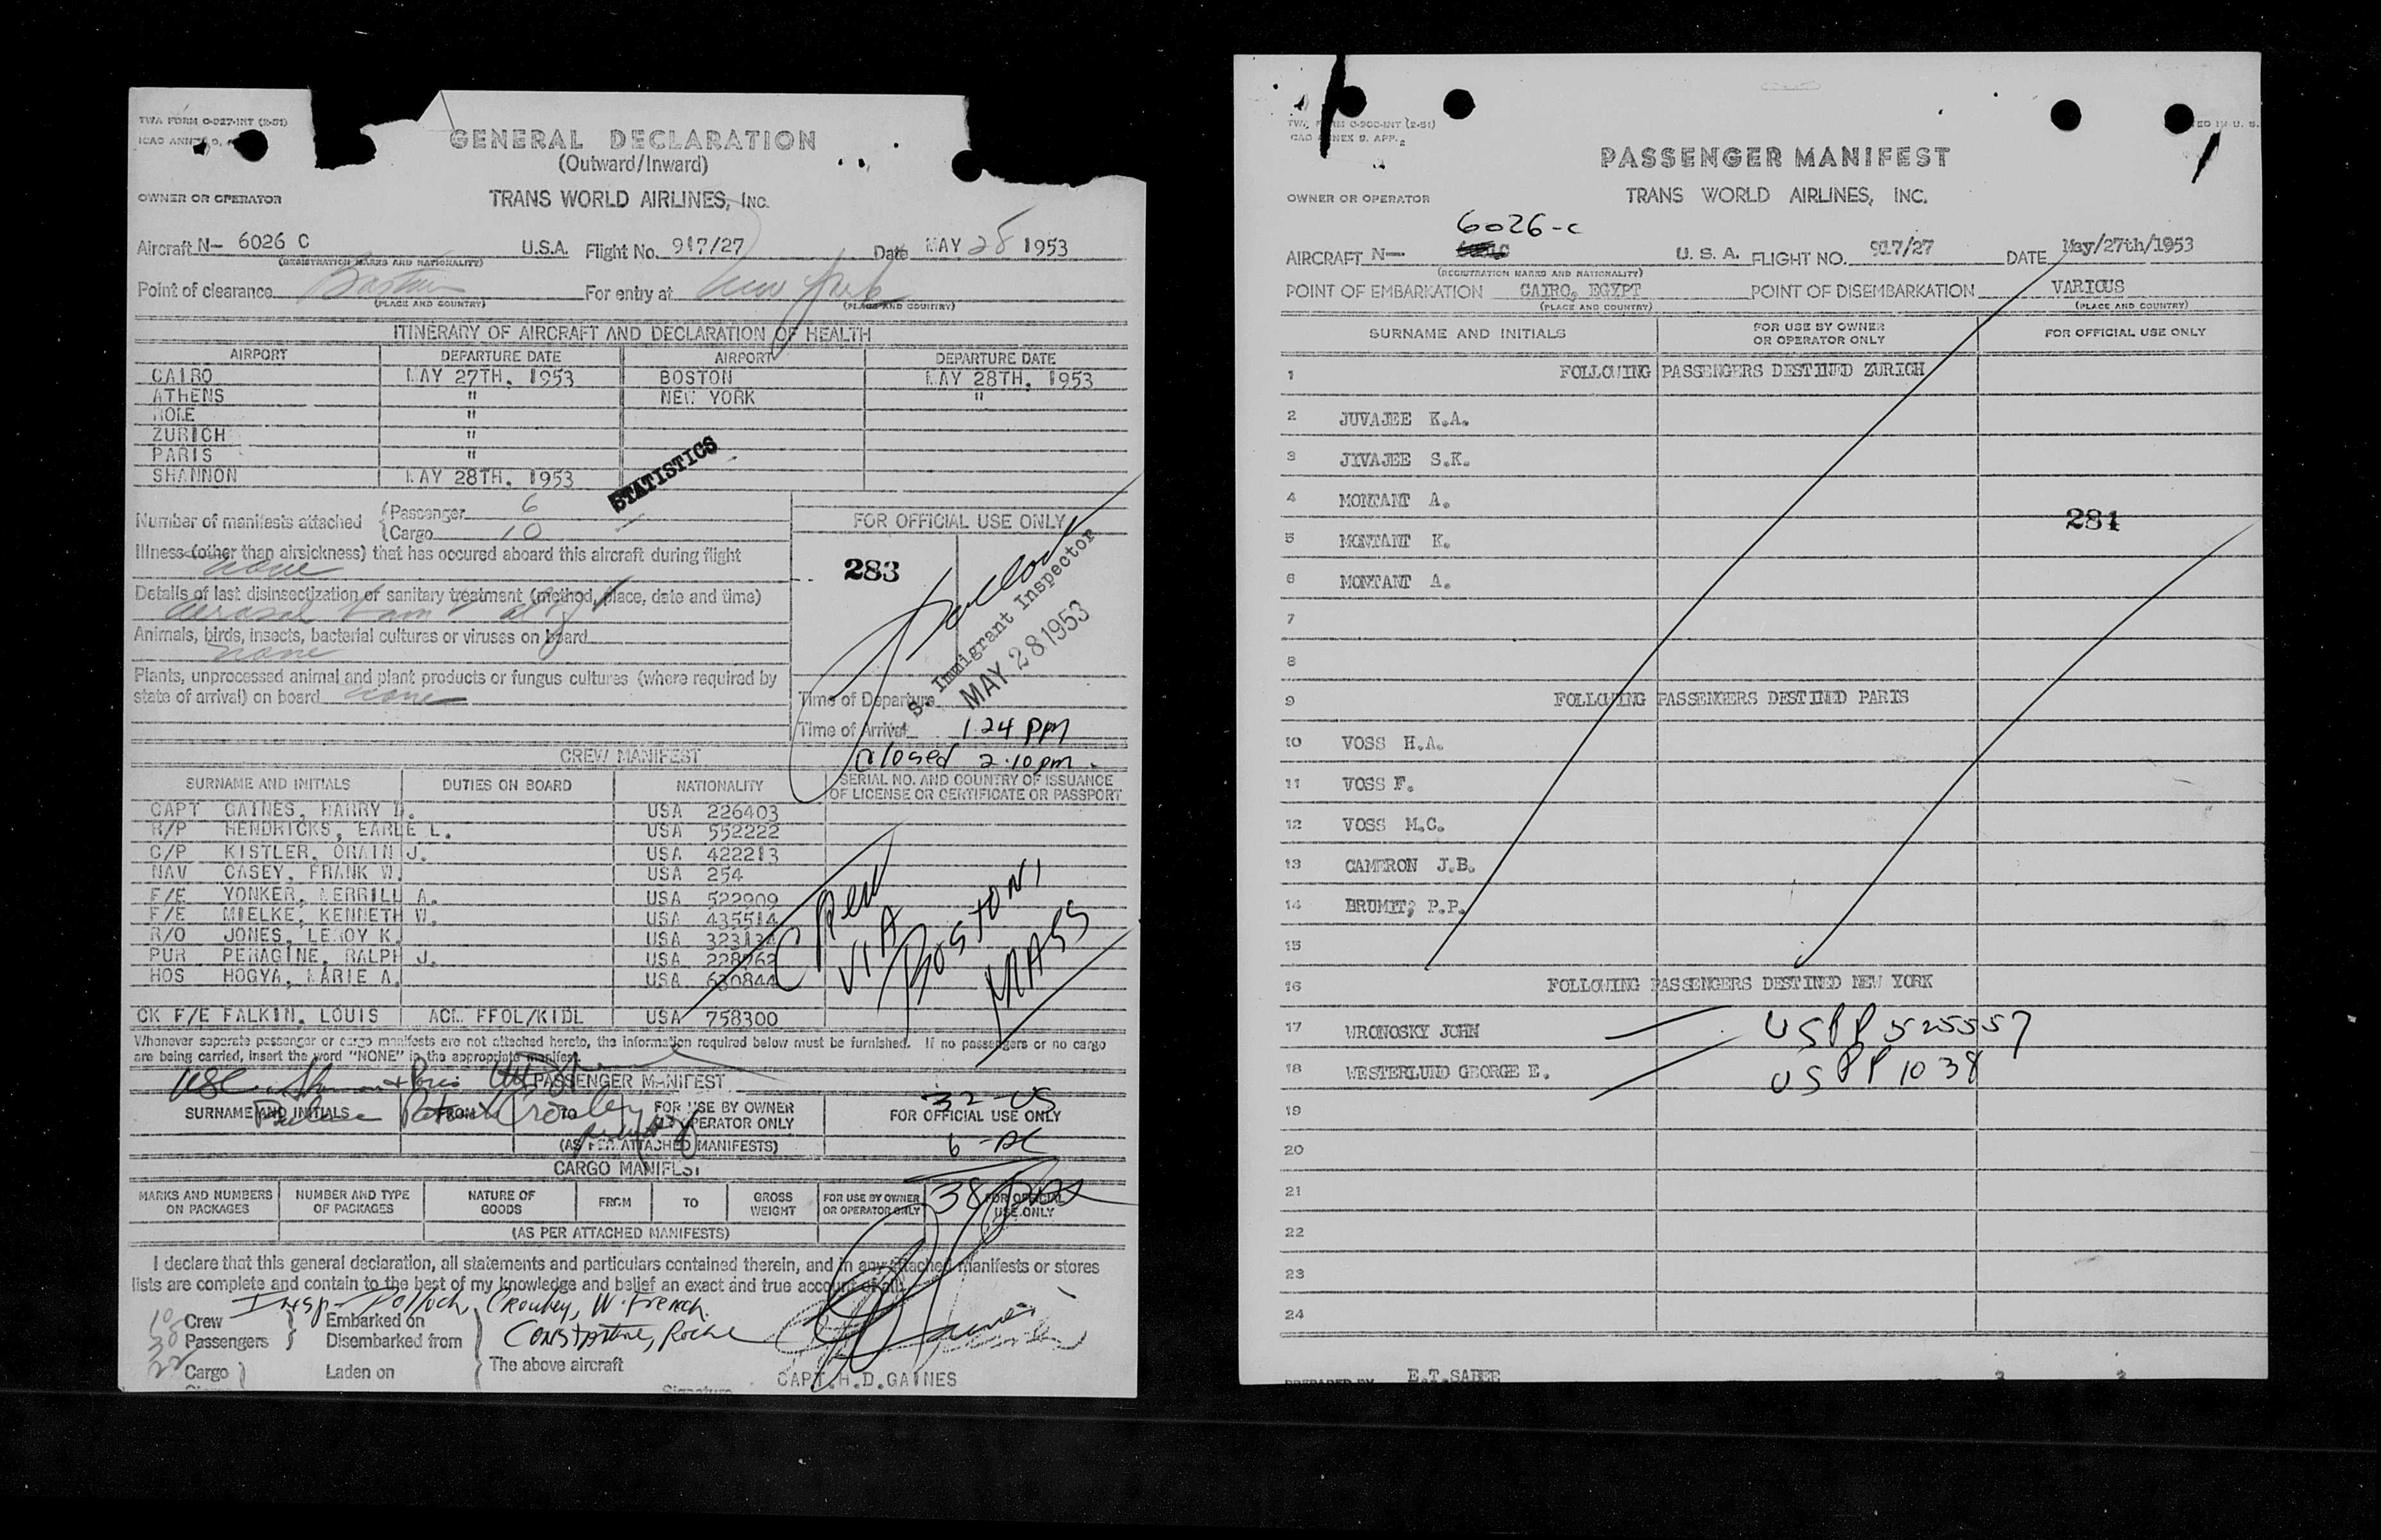 TWA FORM O-927-INT (2-51)
ICAO ANNEX 9,
GENERAL DECLARATION
(Outward/Inward)
OWNER OR OPERATOR TRANS WORLD AIRLINES, INC.
Aircraft N- 6026 C U.S.A. Flight No. 917/27 Date MAY 28 1953
(REGISTRATION MARKS AND NATIONALITY)
Point of clearance Boston For entry at New York
(PLACE AND COUNTRY) (PLACE AND COUNTRY)
ITINERARY OF AIRCRAFT AND DECLARATION OF HEALTH
AIRPORT DEPARTURE DATE AIRPORT DEPARTURE DATE
CAIRO MAY 27TH, 1953 BOSTON MAY 28TH, 1953
ATHENS " NEW YORK "
ROME "
ZURICH "
PARIS "
SHANNON MAY 28TH, 1953
STATISTICS
Number of manifests attached { Passenger 6
{ Cargo 10
FOR OFFICIAL USE ONLY
Illness (other than airsickness) that has occured aboard this aircraft during flight
none
283
Details of last disinsectization or sanitary treatment (method, place, date and time)
aerosol
Animals, birds, insects, bacterial cultures or viruses on board
none
Plants, unprocessed animal and plant products or fungus cultures (where required by
state of arrival) on board none
S. Immigrant Inspector
MAY 28 1953
Time of Departure
Time of Arrival 1.24 pm
Closed 2.10 pm.
CREW MANIFEST
SURNAME AND INITIALS DUTIES ON BOARD NATIONALITY SERIAL NO. AND COUNTRY OF ISSUANCE
OF LICENSE OR CERTIFICATE OR PASSPORT
CAPT GAINES, HARRY D. USA 226403
R/P HENDRICKS, EARLE L. USA 552222
C/P KISTLER, ORAIN J. USA 422213
NAV CASEY, FRANK W. USA 254
F/E YONKER, MERRILL A. USA 522909
F/E MIELKE, KENNETH W. USA 435514
R/O JONES, LEROY K. USA 323134
PUR PERAGINE, RALPH J. USA 228262
HOS HOGYA, MARIE A. USA 630844
CK F/E FALKIN, LOUIS ACM FFOL/KIDL USA 758300
CREW
VIA
BOSTON
MASS
Whenever separate passenger or cargo manifests are not attached hereto, the information required below must be furnished. If no passengers or no cargo
are being carried, insert the word "NONE" in the appropriate manifest.
PASSENGER MANIFEST
32-US
SURNAME AND INITIALS FROM TO FOR USE BY OWNER
OR OPERATOR ONLY FOR OFFICIAL USE ONLY
(AS PER ATTACHED MANIFESTS)
CARGO MANIFEST
38
MARKS AND NUMBERS
ON PACKAGES NUMBER AND TYPE
OF PACKAGES NATURE OF
GOODS FROM TO GROSS
WEIGHT FOR USE BY OWNER
OR OPERATOR ONLY FOR OFFICIAL
USE ONLY
(AS PER ATTACHED MANIFESTS)
I declare that this general declaration, all statements and particulars contained therein, and in any attached manifests or stores
lists are complete and contain to the best of my knowledge and belief an exact and true account of all
Insp- Crowley, W. French.
10 Crew Embarked on
30 Passengers Disembarked from
22 Cargo Laden on The above aircraft
Signature CAPT. H.D.GAINES
OWNER OR OPERATOR
PASSENGER MANIFEST
TRANS WORLD AIRLINES, INC.
6026-C
AIRCRAFT N- U. S. A. FLIGHT NO. 917/27 DATE May/27th/1953
(REGISTRATION MARKS AND NATIONALITY)
POINT OF EMBARKATION CAIRO, EGYPT POINT OF DISEMBARKATION VARIOUS
(PLACE AND COUNTRY) (PLACE AND COUNTRY)
SURNAME AND INITIALS FOR USE BY OWNER
OR OPERATOR ONLY FOR OFFICIAL USE ONLY
1 FOLLOWING PASSENGERS DESTINED ZURICH
2 JUVAJEE K.A.
3 JIVAJEE S.K.
4 MONTANT A.
284
5 MONTANT K.
6 MONTANT A.
7
8
9 FOLLOWING PASSENGERS DESTINED PARIS
10 VOSS H.A.
11 VOSS F.
12 VOSS M.C.
13 CAMERON J.B.
14 BRUMIT, P.P.
15
16 FOLLOWING PASSENGERS DESTINED NEW YORK
17 WRONOSKY JOHN USPP 525557
18 WESTERLUND GEORGE E. US PP 1038
19
20
21
22
23
24
PREPARED BY E.T.SABER